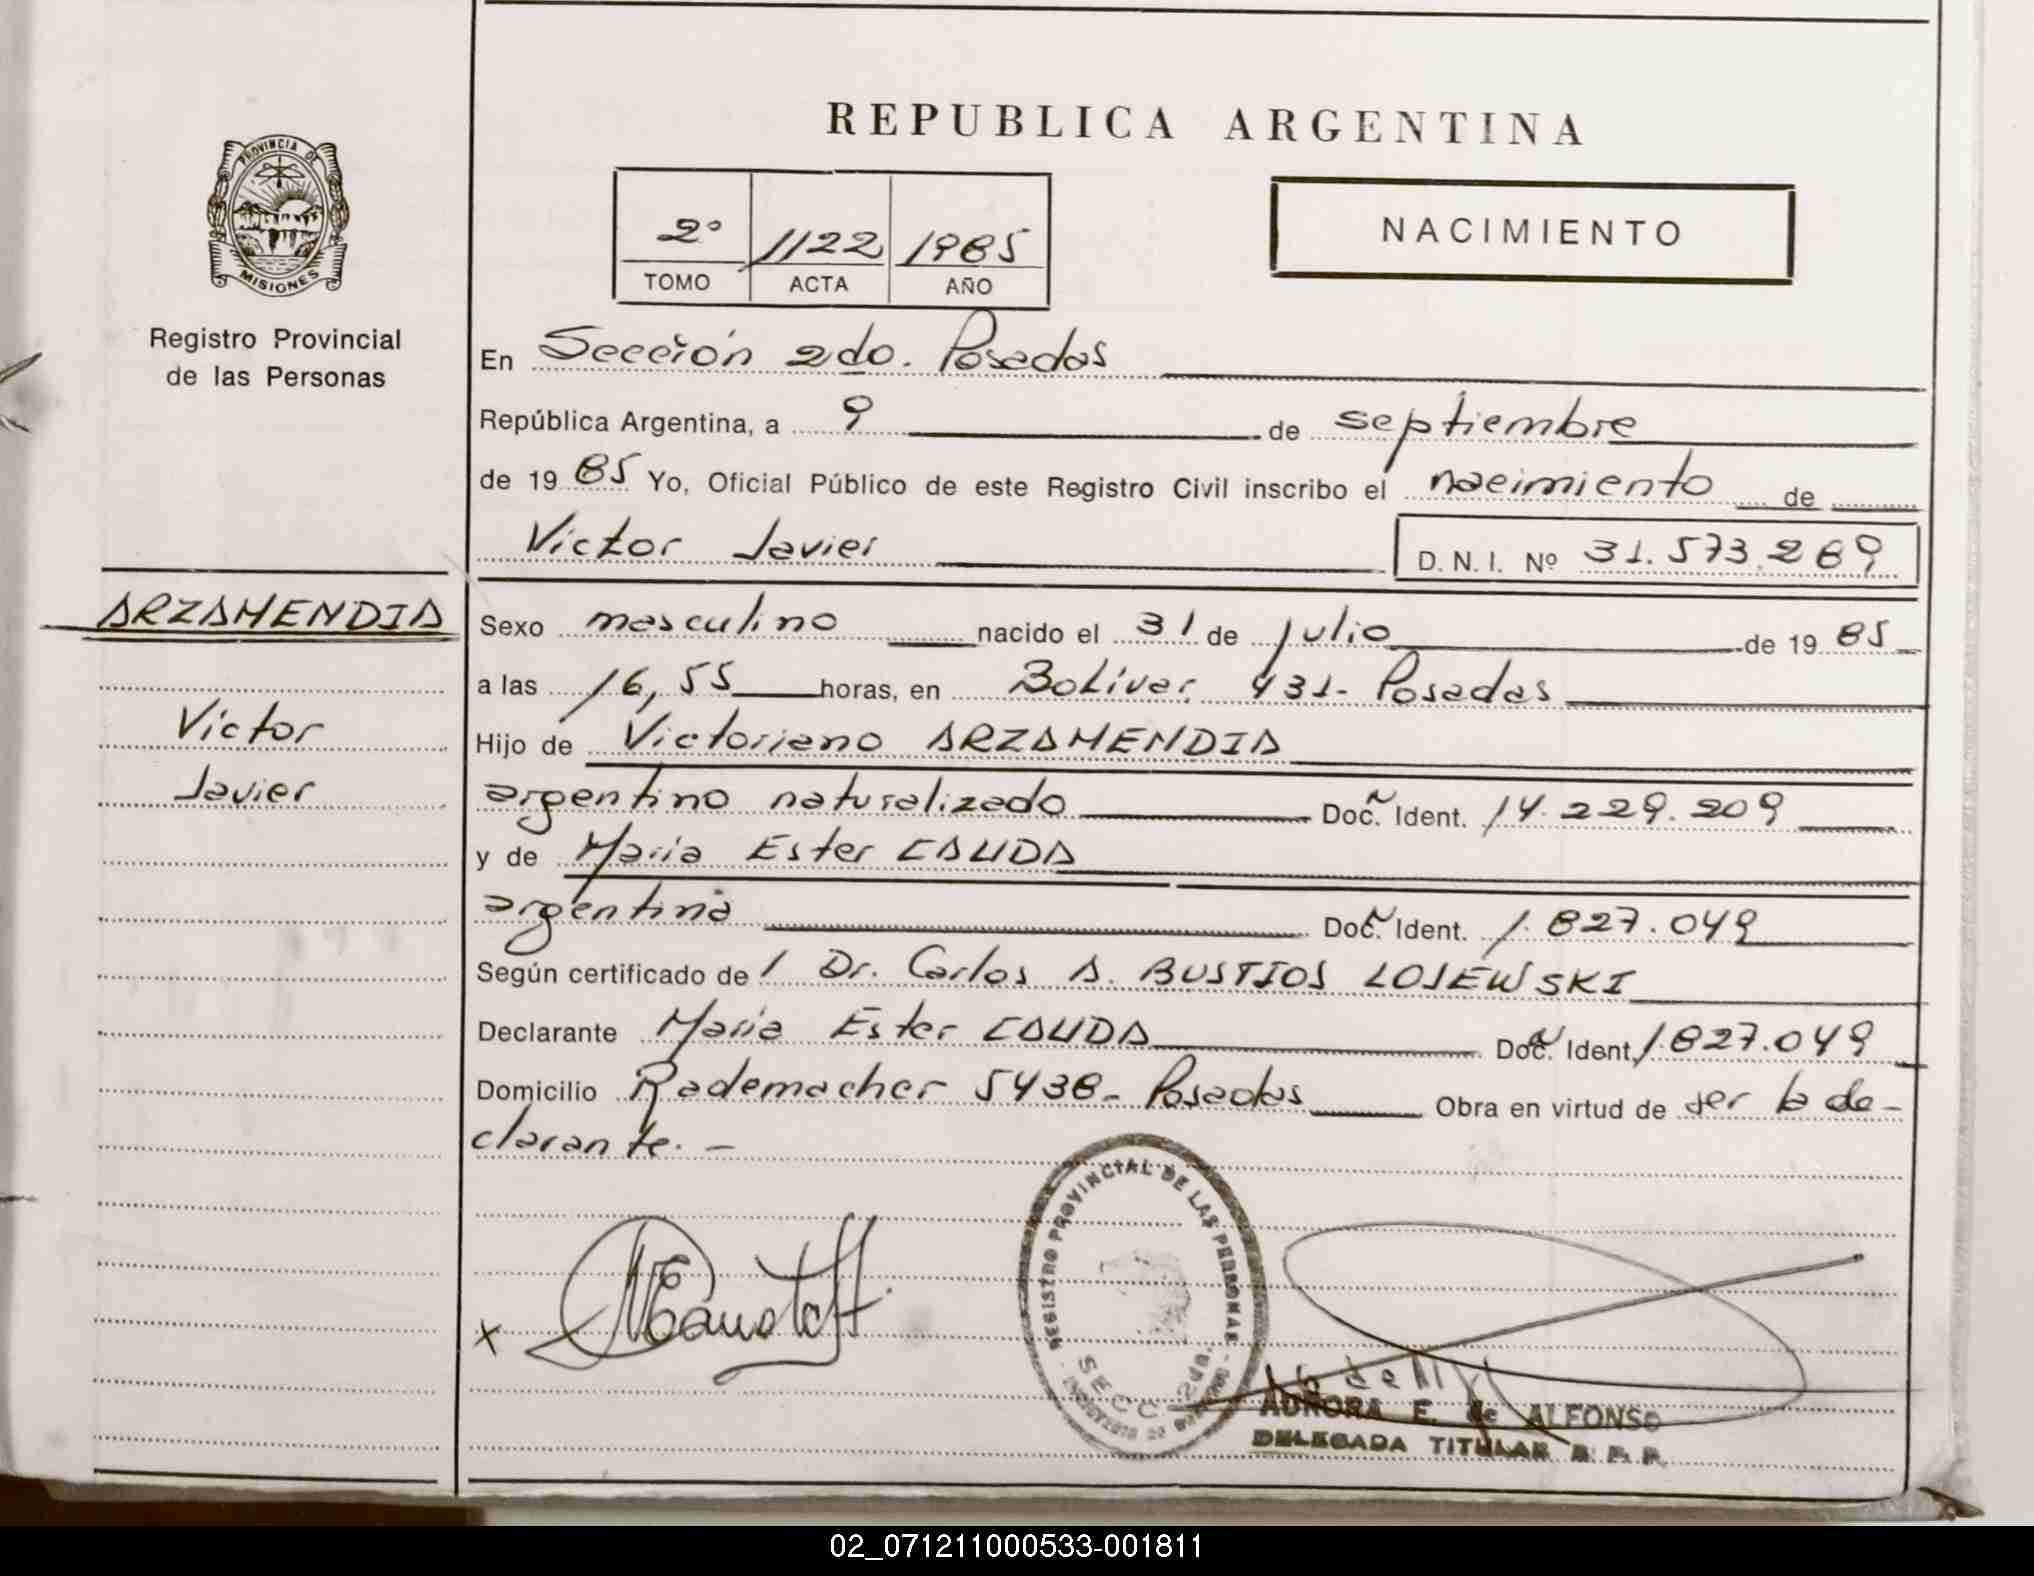 REPUBLICA ARGENTINA
PROVINCIA DE
MISIONES
Registro Provincial
de las Personas
2º 1122 1985
TOMO ACTA AÑO
NACIMIENTO
En Sección 2do. Posadas
República Argentina, a 9 de septiembre
de 1985 Yo, Oficial Público de este Registro Civil inscribo el nacimiento de
Victor Javier D. N. I. Nº 31.573.289
ARZAMENDIA
Victor
Javier
Sexo masculino nacido el 31 de julio de 1985
a las 16,55 horas, en Bolivar 431- Posadas
Hijo de Victoriano ARZAMENDIA
argentino naturalizado Doc. Ident. 14.229.209
y de Maria Ester CAUDA
argentina Doc. Ident. 1.827.049
Según certificado de / Dr. Carlos A. BUSTIOS LOSEWSKI
Declarante Maria Ester CAUDA Doc. Ident. 1.827.049
Domicilio Rademacher 5438- Posadas Obra en virtud de ser la de-
clarante.-
REGISTRO PROVINCIAL DE LAS PERSONAS
SECC. 2da.
X
AURORA E. de ALFONSO
DELEGADA TITULAR R. P. P.
02_071211000533-001811